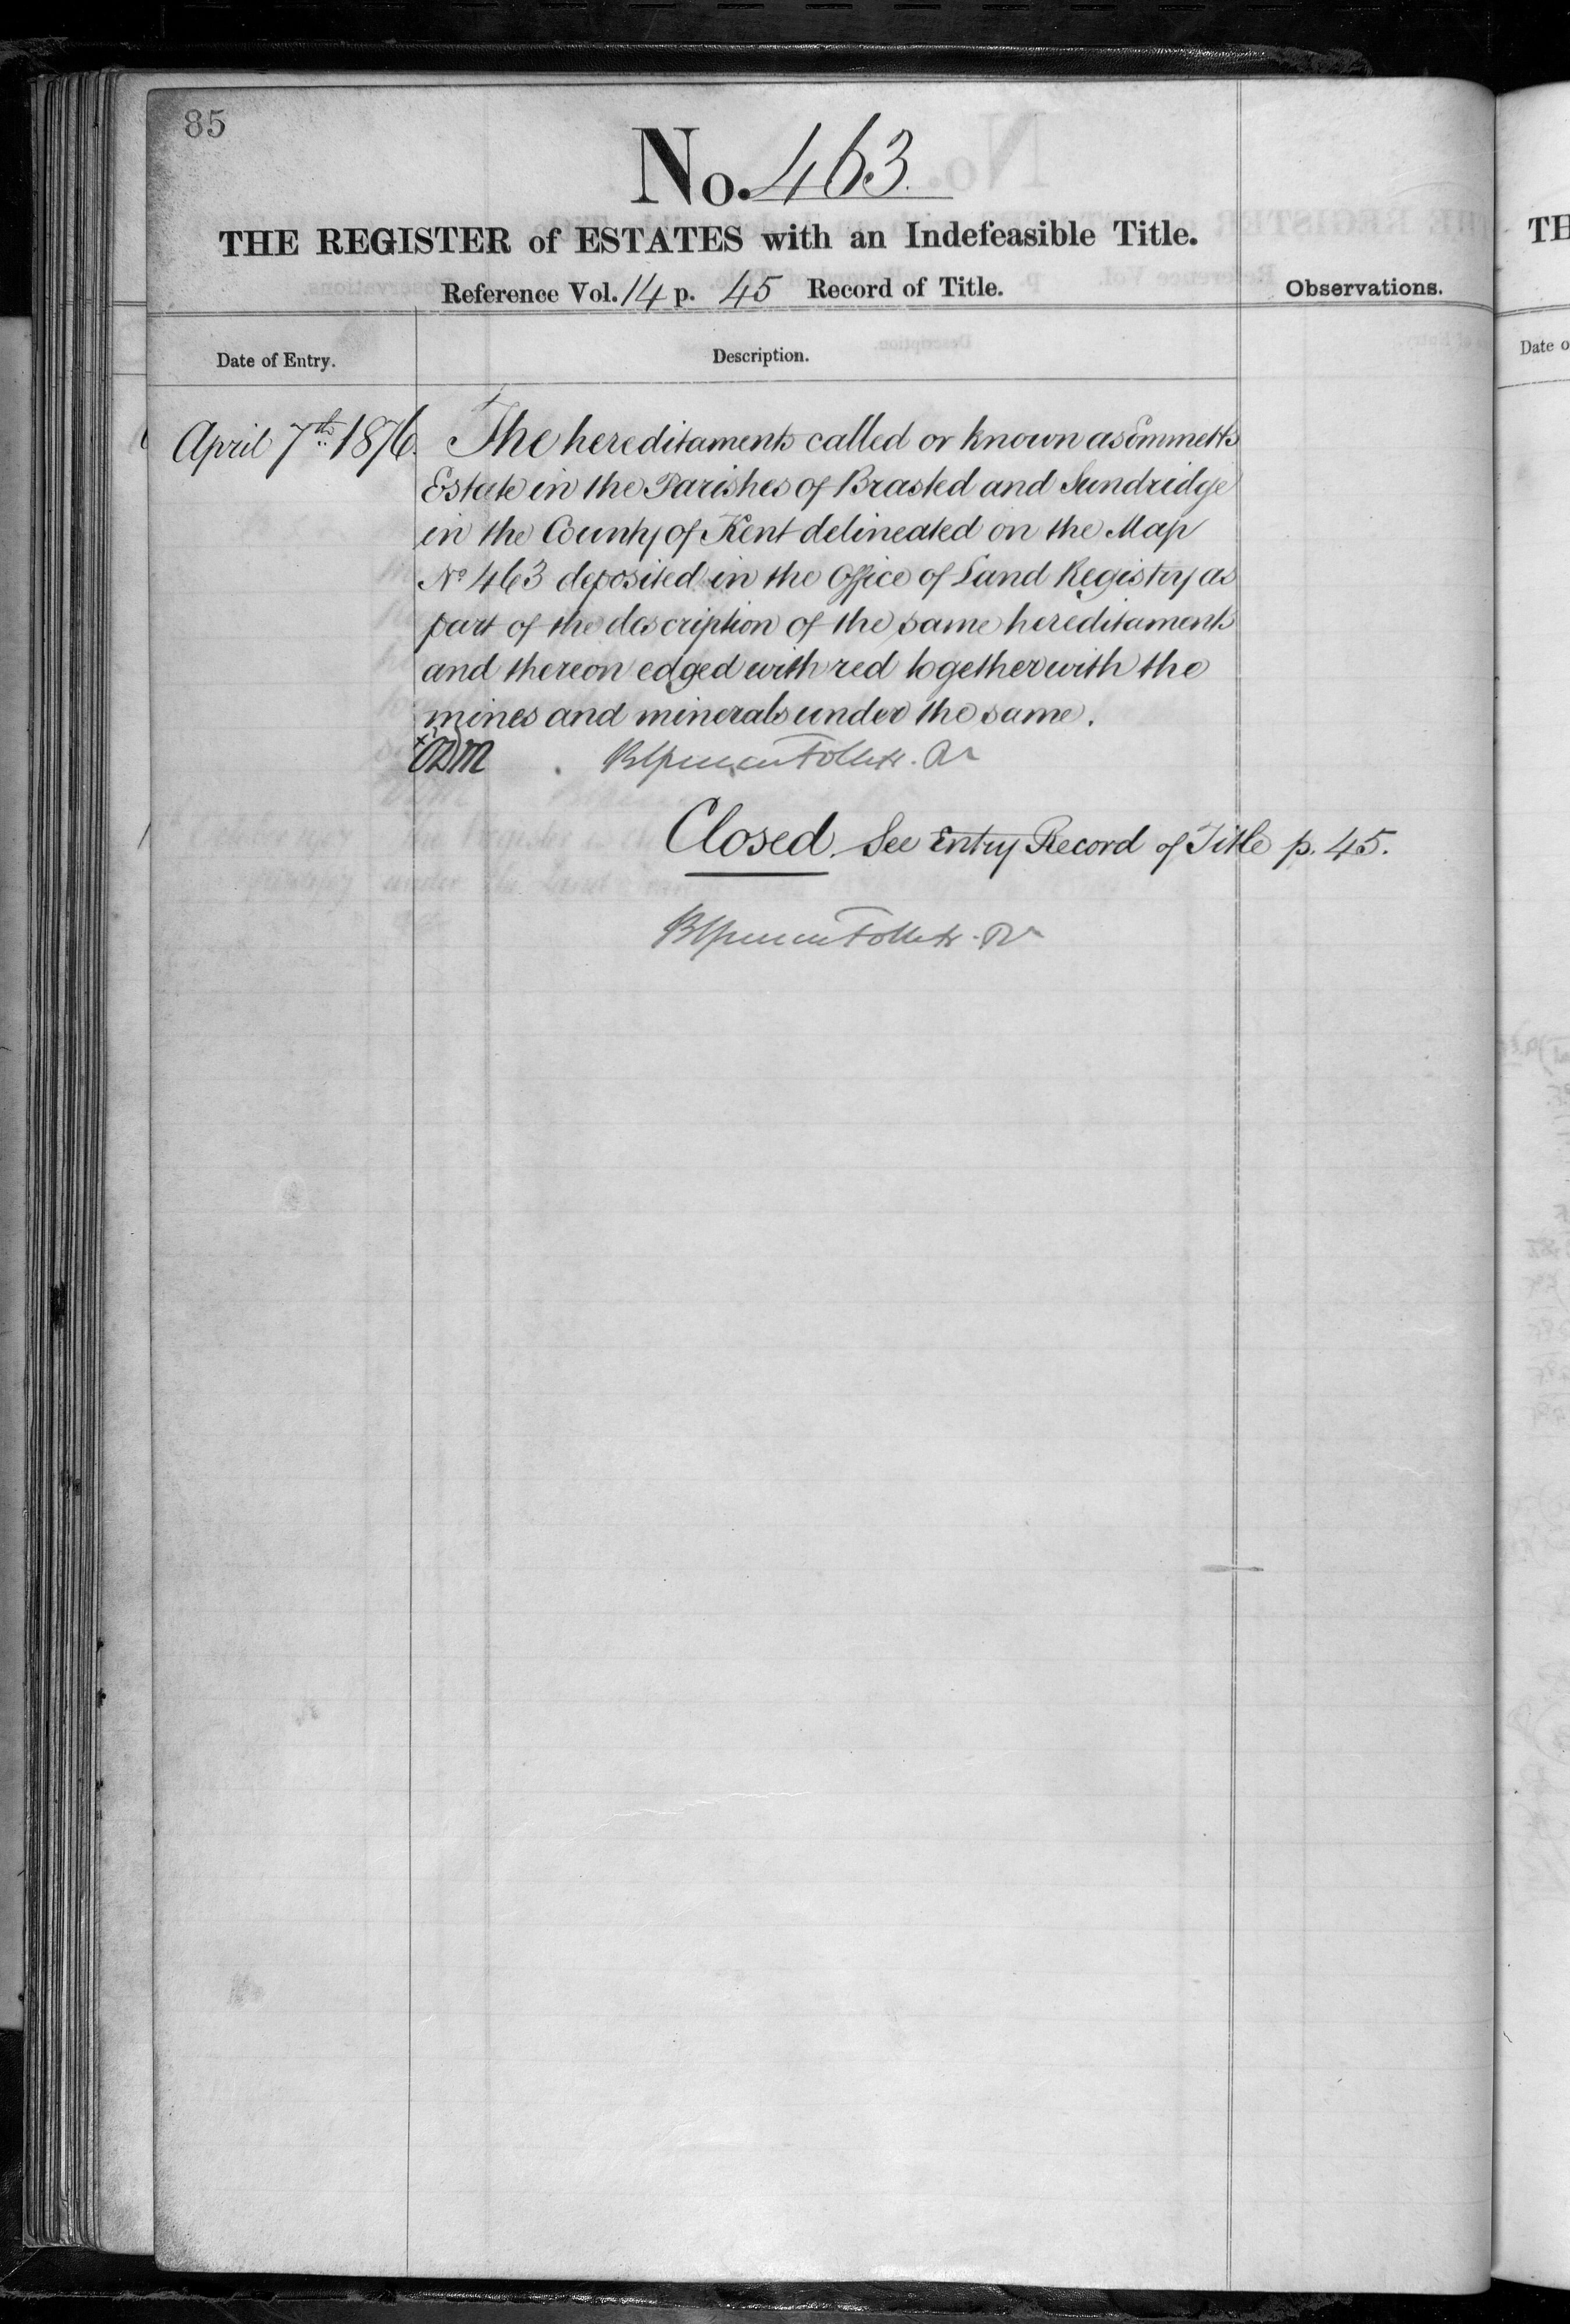 85
No. 463.
THE REGISTER of ESTATES with an Indefeasible Title.
Reference Vol. 14 p. 45 Record of Title.
Observations.
Date of Entry.
Description.
April 7th 1876.
The hereditaments called or known as Emmetts
Estate in the Parishes of Brasted and Sundridge
in the County of Kent delineated on the Map
No 463 deposited in the Office of Land Registry as
part of the description of the same hereditaments
and thereon edged with red together with the
mines and minerals under the same.
Closed. See Entry Record of Title p. 45.
TH
Date o